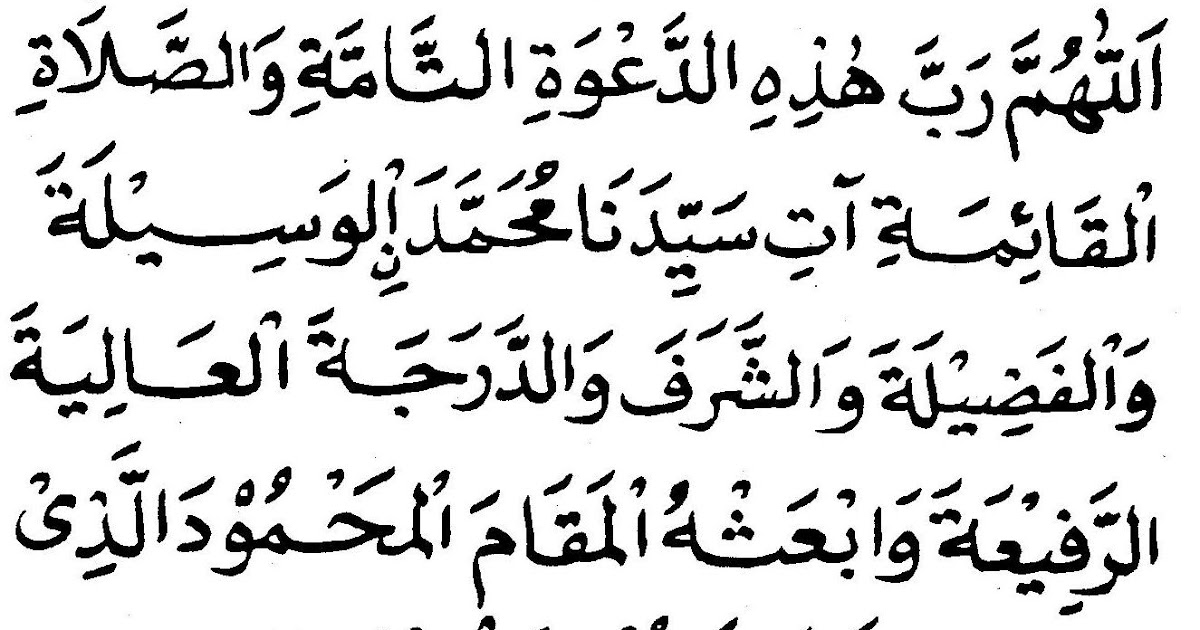 اَللّٰهُمَّ رَبَّ هٰذِهِ الدَّعْوَةِ التَّامَّةِ وَالصَّلَاةِ
الْقَائِمَةِ آتِ سَيِّدَنَا مُحَمَّدَ اِنِلْوَسِيْلَةَ
وَاْلفَضِيْلَةَ وَالشَّرَفَ وَالدَّرَجَةَ الْعَالِيَةَ
الرَّفِيْعَةَ وَابْعَثْهُ الْمَقَامَ الْمَحْمُوْدَ الَّذِىْ